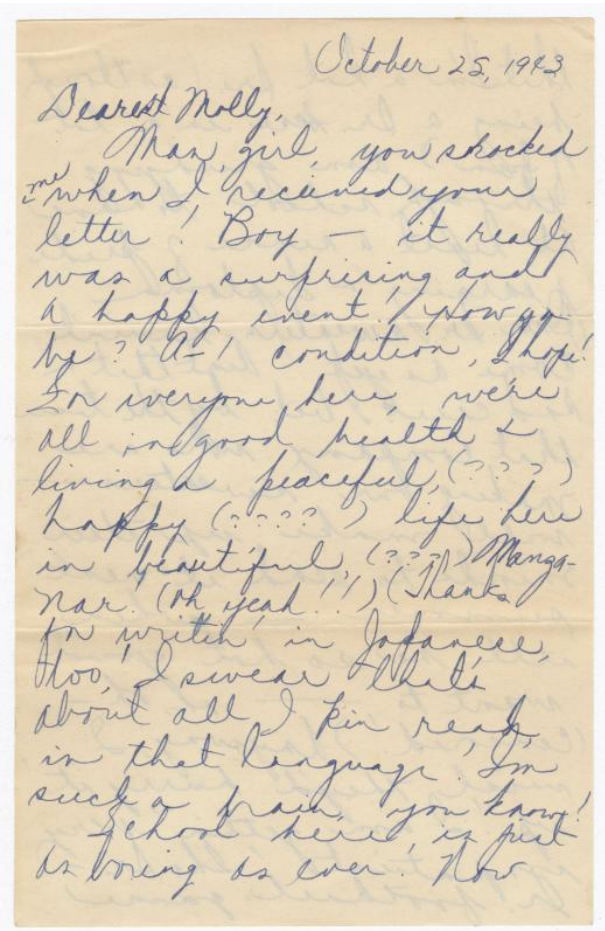 October 25, 1943
Dearest Molly,
Man, girl, you shocked
me when I received your
letter! Boy — it really
was a surprising and
a happy event! How ya
be? A-1 condition, I hope!
For everyone here, we're
all in good health &
living a peaceful, (????)
happy (????) life here
in beautiful, (????) Manza-
nar. (Oh, yeah!!) (Thanks
for writin' in Japanese,
too, I swear that's
about all I kin read,
in that language! I'm
such a brain, you know!
School here, is just
as boring as ever. Now